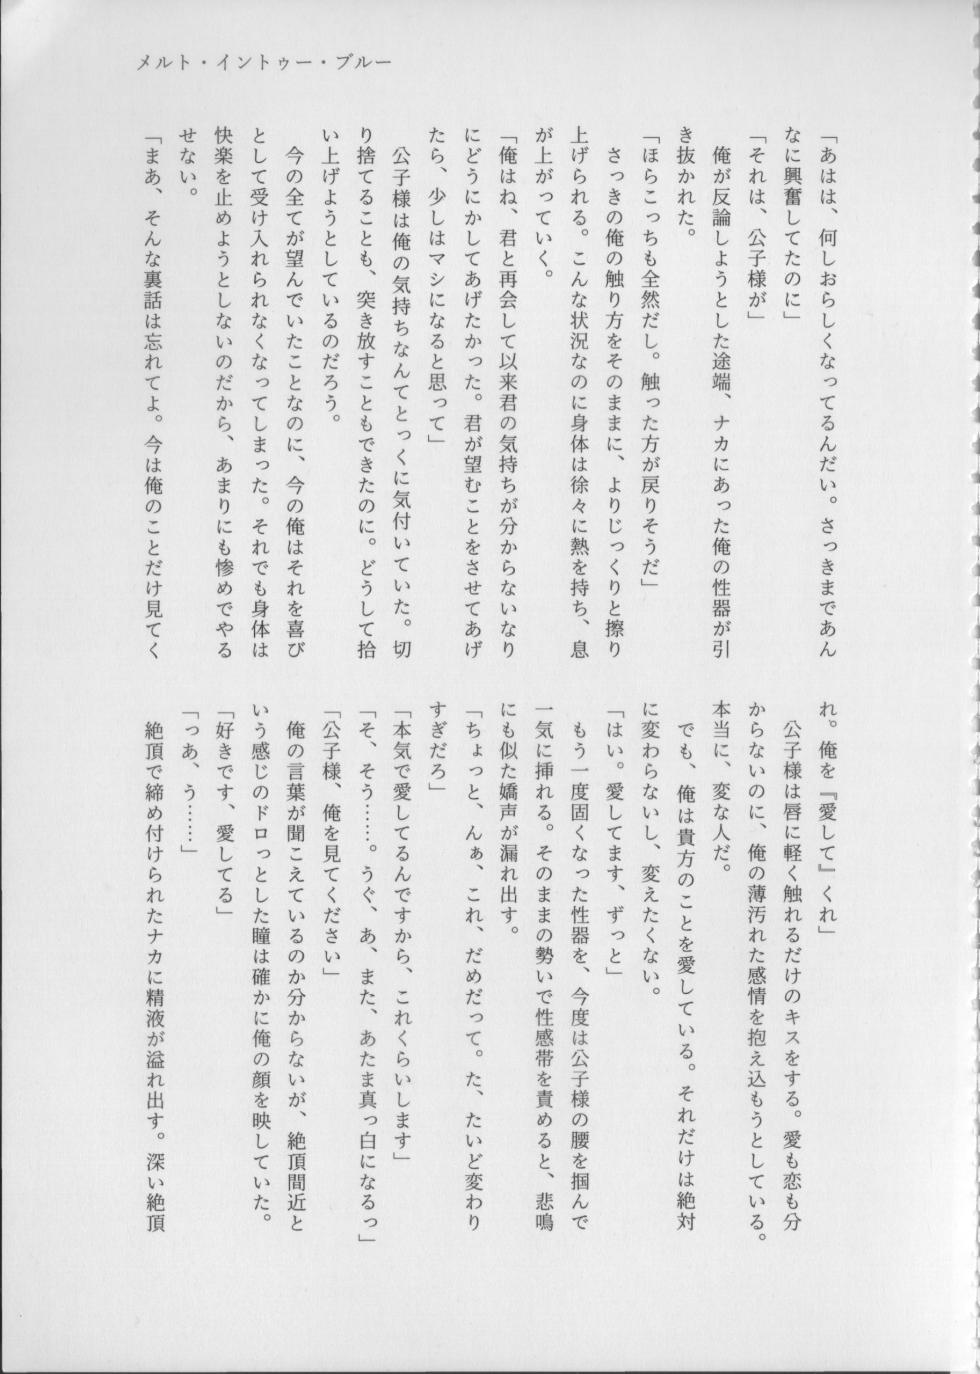 メルト・イントゥー・ブルー
「あはは、何しおらしくなってるんだい。さっきまであん
なに興奮してたのに」
「それは、公子様が」
　俺が反論しようとした途端、ナカにあった俺の性器が引
き抜かれた。
「ほらこっちも全然だし。触った方が戻りそうだ」
　さっきの俺の触り方をそのままに、よりじっくりと擦り
上げられる。こんな状況なのに身体は徐々に熱を持ち、息
が上がっていく。
「俺はね、君と再会して以来君の気持ちが分からないなり
にどうにかしてあげたかった。君が望むことをさせてあげ
たら、少しはマシになると思って」
　公子様は俺の気持ちなんてとっくに気付いていた。切
り捨てることも、突き放すこともできたのに。どうして拾
い上げようとしているのだろう。
　今の全てが望んでいたことなのに、今の俺はそれを喜び
として受け入れられなくなってしまった。それでも身体は
快楽を止めようとしないのだから、あまりにも惨めでやる
せない。
「まあ、そんな裏話は忘れてよ。今は俺のことだけ見てく
れ。俺を『愛して』くれ」
　公子様は唇に軽く触れるだけのキスをする。愛も恋も分
からないのに、俺の薄汚れた感情を抱え込もうとしている。
本当に、変な人だ。
　でも、俺は貴方のことを愛している。それだけは絶対
に変わらないし、変えたくない。
「はい。愛してます、ずっと」
　もう一度固くなった性器を、今度は公子様の腰を掴んで
一気に挿れる。そのままの勢いで性感帯を責めると、悲鳴
にも似た嬌声が漏れ出す。
「ちょっと、んぁ、これ、だめだって。た、たいど変わり
すぎだろ」
「本気で愛してるんですから、これくらいします」
「そ、そう……。うぐ、あ、また、あたま真っ白になるっ」
「公子様、俺を見てください」
　俺の言葉が聞こえているのか分からないが、絶頂間近と
いう感じのドロっとした瞳は確かに俺の顔を映していた。
「好きです、愛してる」
「っあ、う……」
　絶頂で締め付けられたナカに精液が溢れ出す。深い絶頂